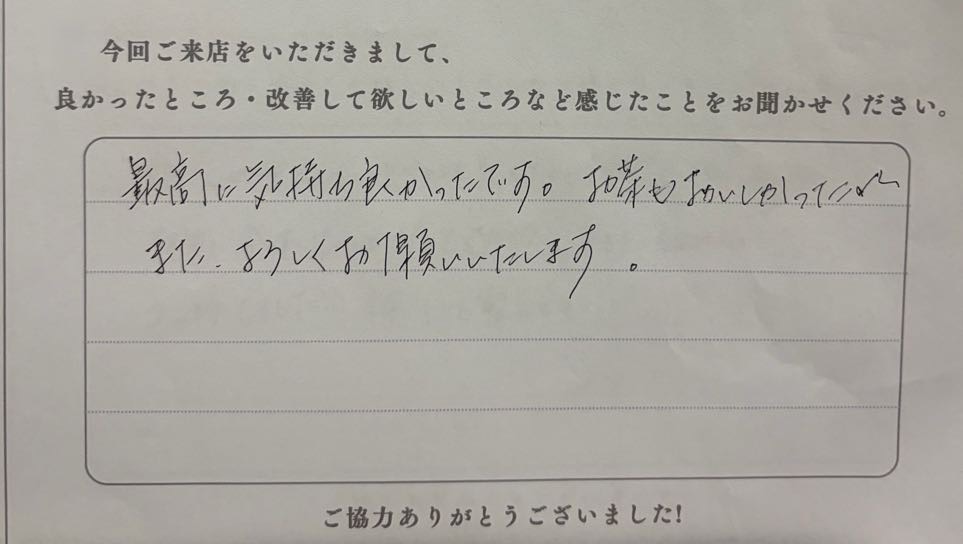 今回ご来店をいただきまして、
良かったところ・改善して欲しいところなど感じたことをお聞かせください。
最高に気持ち良かったです。お茶もおいしかった
また、よろしくお願いいたします。
ご協力ありがとうございました!